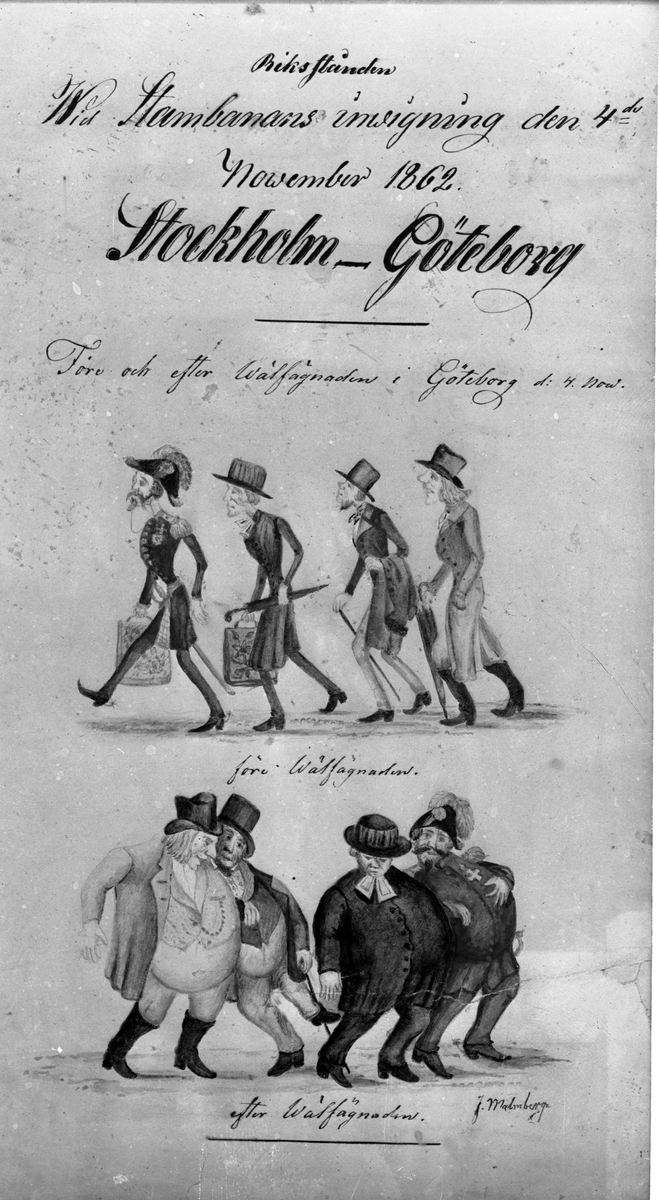 Riksstånden
Wid Stambanans inwigning den 4de
November 1862.
Stockholm - Göteborg
Före och efter Wälfägnaden i Göteborg d: 4. Nov.
före Wälfägnaden.
efter Wälfägnaden.
J. Malmberg